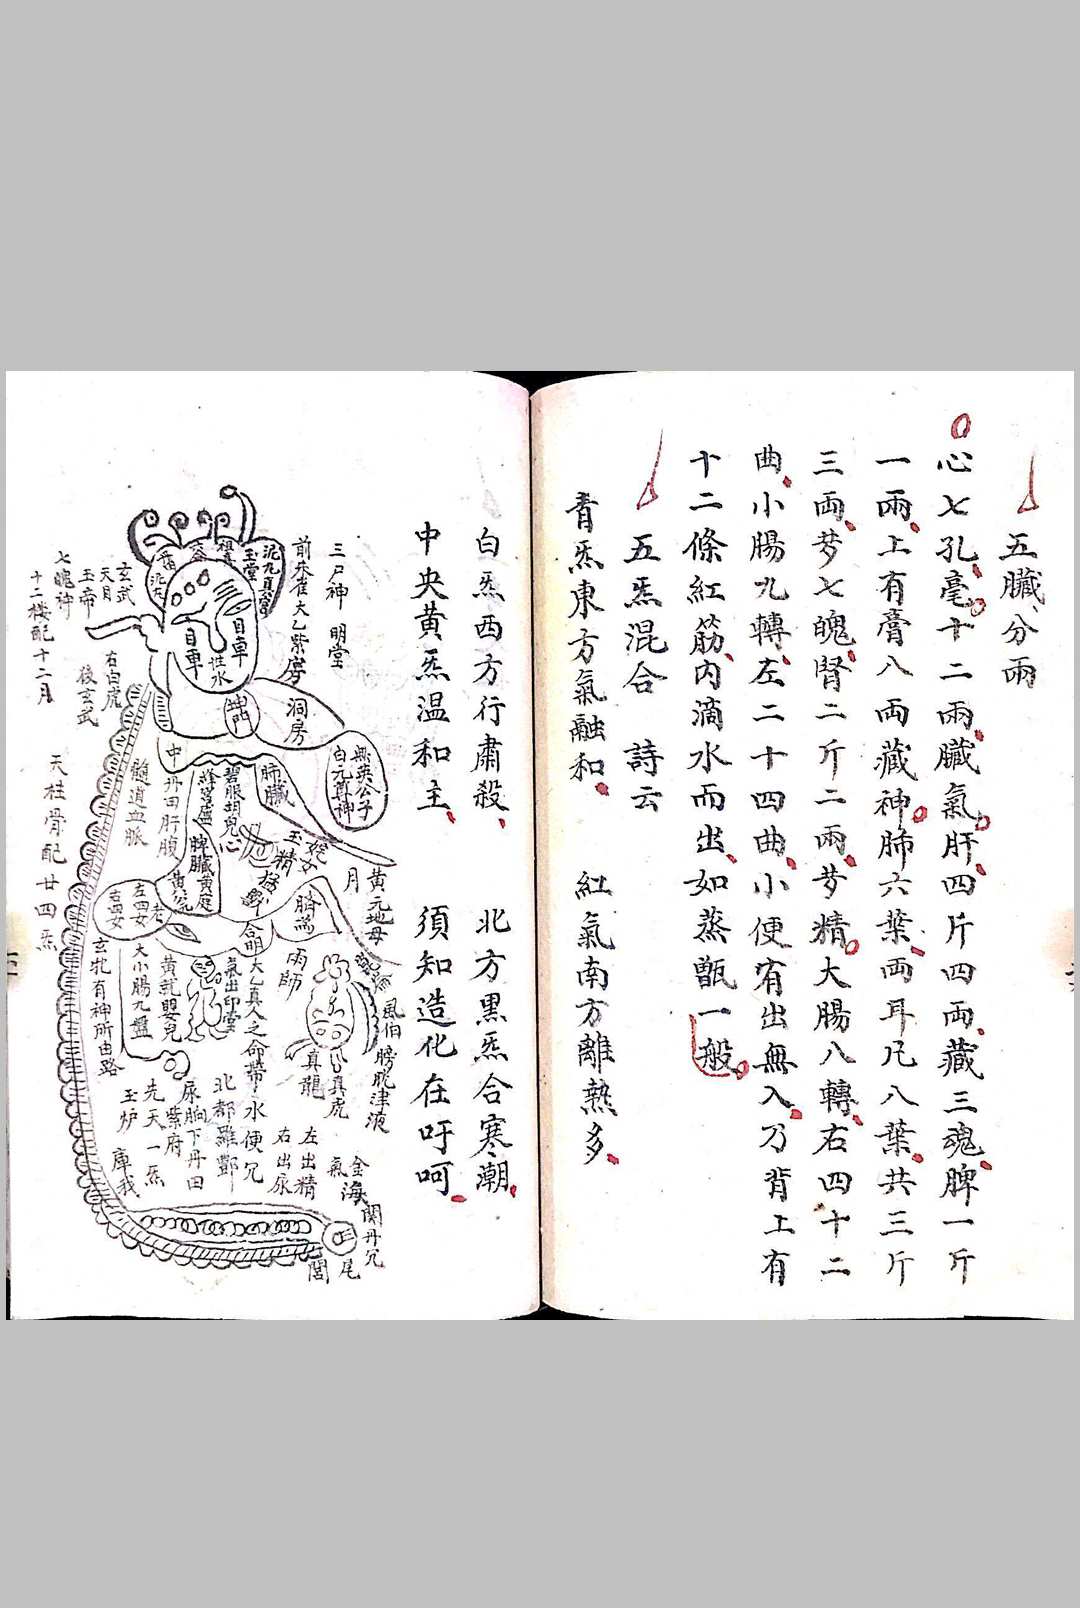 五臟分兩
心七孔毫十二兩臟氣肝四斤四両藏三魂脾一斤
一兩上有膏八両藏神肺六葉両耳凡八葉共三斤
三両藏七魄腎二斤二兩藏精大腸八轉右四十二
曲小腸九轉左二十四曲小便有出無入乃背上有
十二條紅筋内滴水而出如蒸甑一般
五炁混合 詩云
青炁東方氣融和 紅氣南方離热多
白炁西方行肅殺 北方黑炁合寒潮
中央黄炁温和主 須知造化在吁呵
三尸神 明堂
前朱雀大乙紫房
洞房
泥九真宮
玉堂
目車
目車
性水
玄武
天目
玉帝
七魄神
十二楼配十二月
右白虎
後玄武
髓道血脈
天柱骨配廿四炁
無英公子
白元尊神
肺臟
碧眼胡兒心
中丹田肝腹
脾臟黄庭
玉精
姹女
月
黄元地母
臍
合明
雨師
風伯
膀胱津液
真龍
真虎
大乙真人之命蒂
氣出印堂
黄就嬰兒
大小腸九盤
玄牝有神所由路
水便冗
北都羅酆
尿胞下丹田
紫府
先天一炁
玉炉
庫我
左出精
右出尿
金海
氣
関丹冗
尾
閭